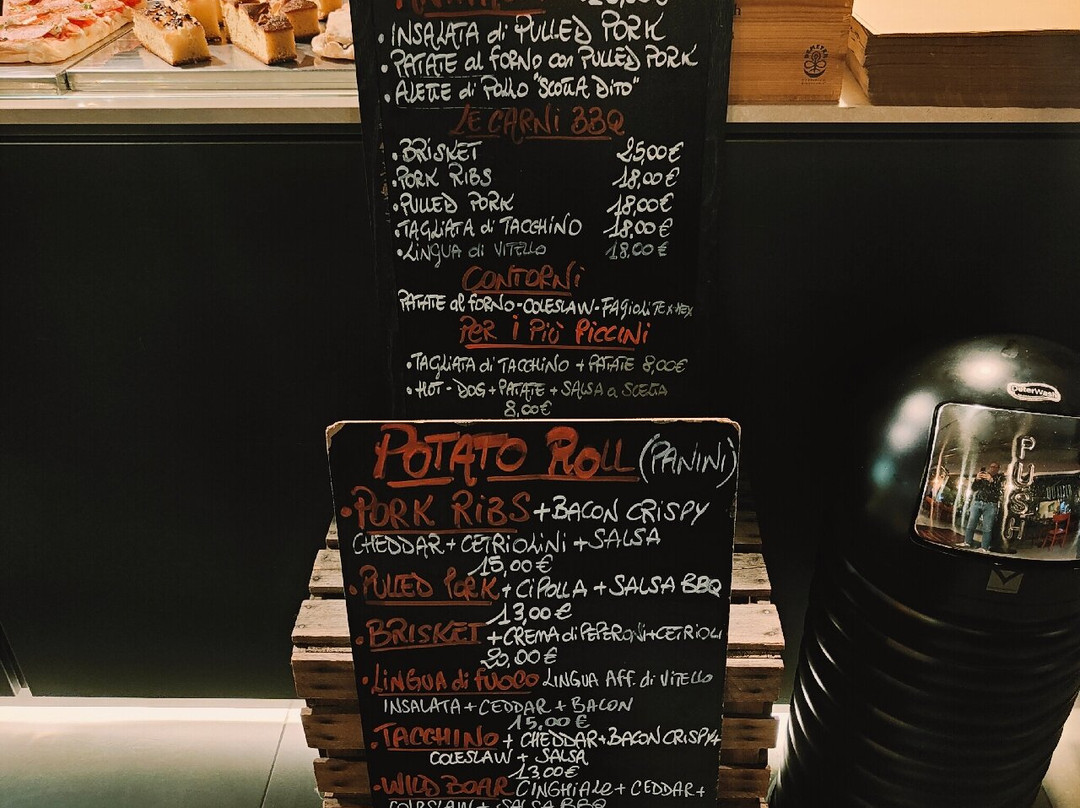 10,00€
• INSALATA di PULLED PORK
• PATATE al FORNO con PULLED PORK
• ALETTE di POLLO "SCOTTA DITO"
LE CARNI BBQ
• BRISKET 25,00€
• PORK RIBS 18,00€
• PULLED PORK 18,00€
• TAGLIATA di TACCHINO 18,00€
• LINGUA di VITELLO 18,00€
CONTORNI
PATATE al FORNO - COLESLAW - FAGIOLI TEX-MEX
PER I PIÙ PICCINI
• TAGLIATA di TACCHINO + PATATE 8,00€
• HOT-DOG + PATATE + SALSA a SCELTA
8,00€
POTATO ROLL (PANINI)
• PORK RIBS + BACON CRISPY
CHEDDAR + CETRIOLINI + SALSA
15,00€
• PULLED PORK + CIPOLLA + SALSA BBQ
13,00€
• BRISKET + CREMA di PEPERONI + CETRIOLI
20,00€
• LINGUA di FUOCO LINGUA AFF. di VITELLO
INSALATA + CEDDAR + BACON
15,00€
• TACCHINO + CHEDDAR + BACON CRISPY +
COLESLAW + SALSA
13,00€
• WILD BOAR CINGHIALE + CEDDAR +
COLESLAW + SALSA BBQ
DEMETER
PUSH